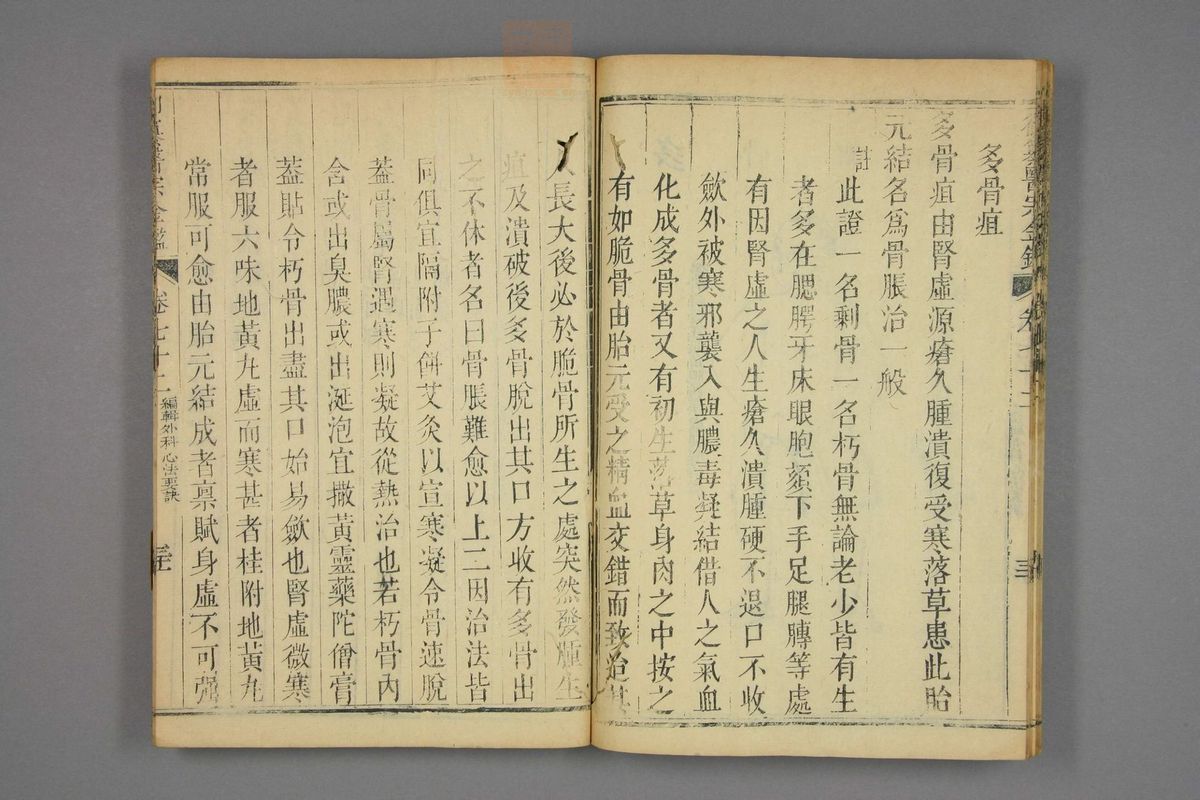 多骨疽
多骨疽由腎虛源瘡久腫潰復受寒落草患此胎
元結名爲骨脹治一般
註
此證一名剩骨一名朽骨無論老少皆有生
者多在腮腭牙床眼胞頦下手足腿膊等處
有因腎虛之人生瘡久潰腫硬不退口不收
歛外被寒邪襲入與膿毒凝結借人之氣血
化成多骨者又有初生落草身肉之中按之
有如脆骨由胎元受之精血交錯而致迨其
人長大後必於脆骨所生之處突然發腫生
疽及潰破後多骨脫出其口方收有多骨出
之不休者名曰骨脹難愈以上二因治法皆
同俱宜隔附子餅艾灸以宣寒凝令骨速脫
蓋骨屬腎遇寒則凝故從熱治也若朽骨內
含或出臭膿或出涎泡宜撒黃靈藥陀僧膏
蓋貼令朽骨出盡其口始易歛也腎虛微寒
者服六味地黃丸虛而寒甚者桂附地黃丸
常服可愈由胎元結成者禀賦身虛不可强
卷七十二
編輯外科心法要訣